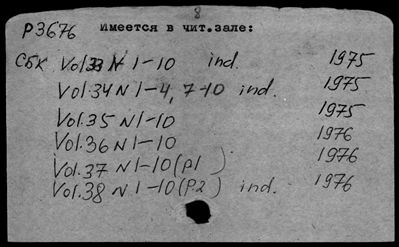 8
P3676 Имеется в чит.зале:
СБК Vol.33 N 1-10 ind. 1975
Vol.34 N 1-4, 7-10 ind. 1975
Vol.35 N 1-10 1975
Vol.36 N 1-10 1976
Vol.37 N 1-10 (p1) 1976
Vol.38 N 1-10 (P2) ind. 1976